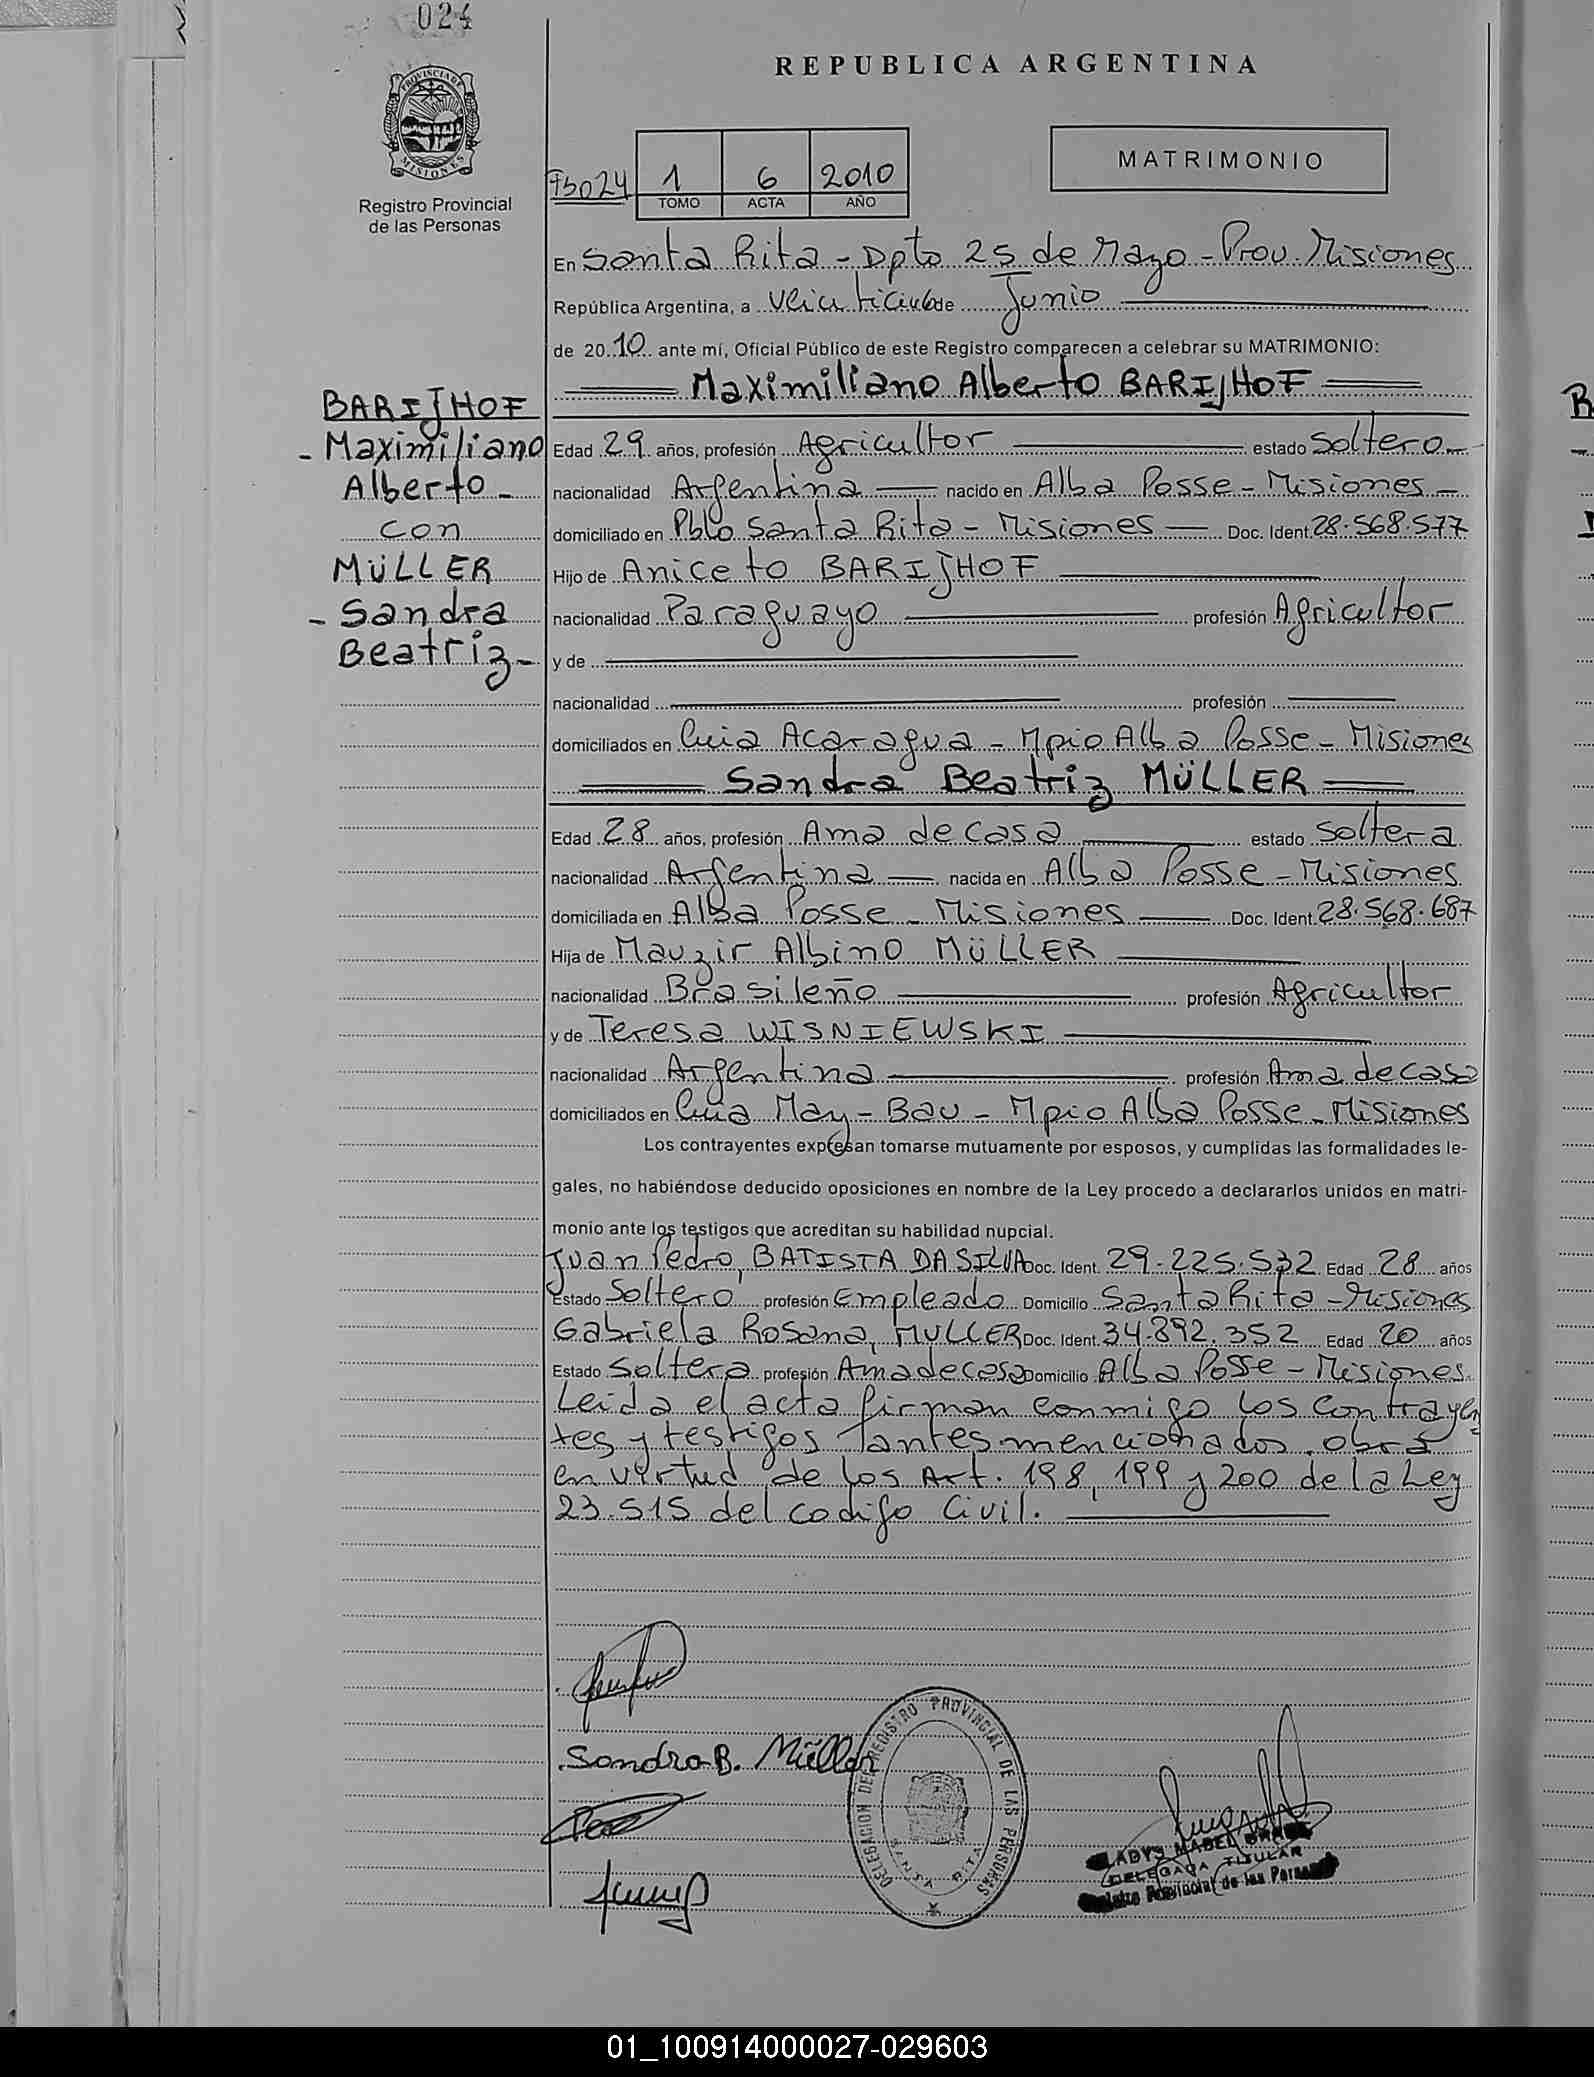 024
REPUBLICA ARGENTINA
PROVINCIA DE MISIONES
Registro Provincial
de las Personas
Fº024
1 6 2010
TOMO ACTA AÑO
MATRIMONIO
En Santa Rita - Dpto 25 de Mayo - Prov. Misiones
República Argentina, a veinticinco de Junio
de 2010 ante mí, Oficial Público de este Registro comparecen a celebrar su MATRIMONIO:
Maximiliano Alberto BARIJHOF
BARIJHOF
- Maximiliano
Alberto -
con
MÜLLER
- Sandra
Beatriz -
Edad 29 años, profesión Agricultor estado Soltero
nacionalidad Argentina nacido en Alba Posse - Misiones -
domiciliado en Pblo Santa Rita - Misiones Doc. Ident. 28.568.577
Hijo de Aniceto BARIJHOF
nacionalidad Paraguayo profesión Agricultor
y de
nacionalidad profesión
domiciliados en Cnia Acaragua - Mpio Alba Posse - Misiones
Sandra Beatriz MÜLLER
Edad 28 años, profesión Ama de casa estado Soltera
nacionalidad Argentina nacida en Alba Posse - Misiones
domiciliada en Alba Posse - Misiones Doc. Ident. 28.568.687
Hija de Mauzir Albino MÜLLER
nacionalidad Brasileño profesión Agricultor
y de Teresa WISNIEWSKI
nacionalidad Argentina profesión Ama de casa
domiciliados en Cnia May - Bau - Mpio Alba Posse - Misiones
Los contrayentes expresan tomarse mutuamente por esposos, y cumplidas las formalidades le-
gales, no habiéndose deducido oposiciones en nombre de la Ley procedo a declararlos unidos en matri-
monio ante los testigos que acreditan su habilidad nupcial.
Juan Pedro, BATISTA DA SILVA Doc. Ident. 29.225.532 Edad 28 años
Estado Soltero profesión Empleado Domicilio Santa Rita - Misiones
Gabriela Rosana, MULLER Doc. Ident. 34.892.352 Edad 20 años
Estado Soltera profesión Ama de casa Domicilio Alba Posse - Misiones
Leida el acta firman conmigo los contrayen
tes y testigos antes mencionados. obra
en virtud de los Art. 198, 199 y 200 de la Ley
23.515 del codigo Civil.
Sandra B. Müller
DELEGACION DEL REGISTRO PROVINCIAL DE LAS PERSONAS
SANTA RITA
GLADYS MABEL
DELEGADA TITULAR
Registro Provincial de las Personas
01_100914000027-029603